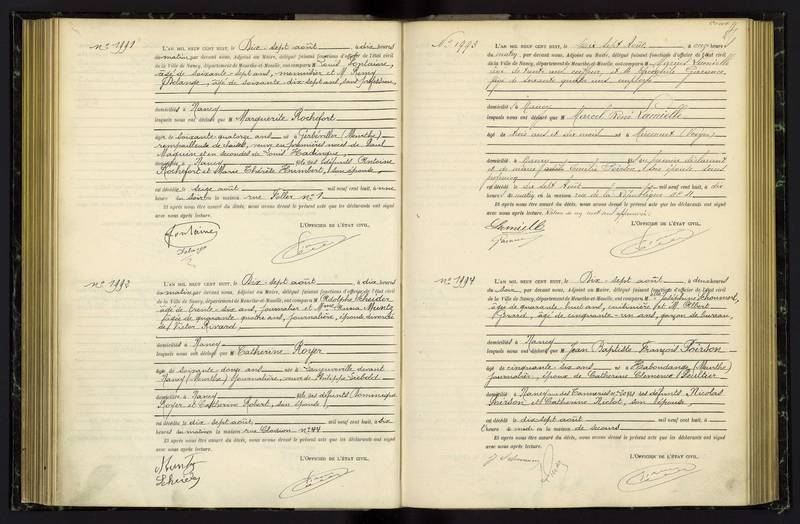 n° 1991
L'AN MIL NEUF CENT HUIT, le Dix-sept août, à dix heures
du matin, par devant nous, Adjoint au Maire, délégué faisant fonctions d'officier de l'état civil
de la Ville de Nancy, département de Meurthe-et-Moselle, ont comparu M Louis Fontaine,
âgé de soixante-sept ans, menuisier et M
Delange, âgé de soixante-dix-sept ans, sans profession,
domiciliés à Nancy
lesquels nous ont déclaré que M Marguerite Rochefort
âgée de soixante quatorze ans née à Gerbéviller (Meurthe)
rempailleuse de chaises, veuve en premières noces de
Maquin et en secondes de Louis
domiciliée à Nancy fille des défunts Antoine
Rochefort et Marie Thérèse Humbert, son épouse
est décédée le seize août mil neuf cent huit, à une
heure du soir en la maison rue Feller n° 1
Et après nous être assuré du décès, nous avons dressé le présent acte que les déclarants ont signé
avec nous après lecture.
L'OFFICIER DE L'ÉTAT CIVIL,
Fontaine
Delange
n° 1992
L'AN MIL NEUF CENT HUIT, le Dix-sept août, à dix heures
du matin, par devant nous, Adjoint au Maire, délégué faisant fonctions d'officier de l'état civil
de la Ville de Nancy, département de Meurthe-et-Moselle, ont comparu M Adolphe Scheider
âgé de trente-six ans, journalier et Mme Anna Muntz
âgée de quarante-quatre ans, journalière, épouse divorcée
de Victor Rivard
domiciliés à Nancy
lesquels nous ont déclaré que M Catherine Royer
âgée de soixante-douze ans née à Laneuveville devant
Nancy (Meurthe) journalière, veuve de Philippe
domiciliée à Nancy fille des défunts Dominique
Royer et Catherine Robert, son épouse
est décédée le dix-sept août mil neuf cent huit, à six
heures du matin en la maison rue Clodion n° 44
Et après nous être assuré du décès, nous avons dressé le présent acte que les déclarants ont signé
avec nous après lecture.
L'OFFICIER DE L'ÉTAT CIVIL,
Muntz
N° 1993
L'AN MIL NEUF CENT HUIT, le dix sept Août, à onze heures
du matin, par devant nous, Adjoint au Maire, délégué faisant fonctions d'officier de l'état civil
de la Ville de Nancy, département de Meurthe-et-Moselle, ont comparu M Marcel Lamielle
âgé de trente ans, et M Théophile
âgé de quarante quatre ans, employé
domiciliés à Nancy
lesquels nous ont déclaré que M Marcel René Lamielle
âgé de trois ans et dix mois né à Mirecourt (Vosges)
domicilié à Nancy fils du premier déclarant
et de Marie Amélie Poirson, son épouse sans
profession
est décédé le dix sept Août mil neuf cent huit, à dix
heures du matin en la maison rue de la République n° 11
Et après nous être assuré du décès, nous avons dressé le présent acte que les déclarants ont signé
avec nous après lecture.
L'OFFICIER DE L'ÉTAT CIVIL,
Lamielle
n° 1994
L'AN MIL NEUF CENT HUIT, le Dix-sept août, à deux heures
du soir, par devant nous, Adjoint au Maire, délégué faisant fonctions d'officier de l'état civil
de la Ville de Nancy, département de Meurthe-et-Moselle, ont comparu M Joséphine
âgée de quarante-huit ans, cuisinière et M. Albert
Girard, âgé de cinquante-un ans, garçon de bureau,
domiciliés à Nancy
lesquels nous ont déclaré que M Jean Baptiste François Poirson
âgé de cinquante-six ans né à Haboudange (Meurthe)
journalier, époux de Catherine Clémence
domicilié à Nancy rue des Tanneries fils des défunts Nicolas
Poirson et Catherine Riclot, son épouse
est décédé le dix-sept août mil neuf cent huit, à
heure de midi en la maison de secours
Et après nous être assuré du décès, nous avons dressé le présent acte que les déclarants ont signé
avec nous après lecture.
L'OFFICIER DE L'ÉTAT CIVIL,